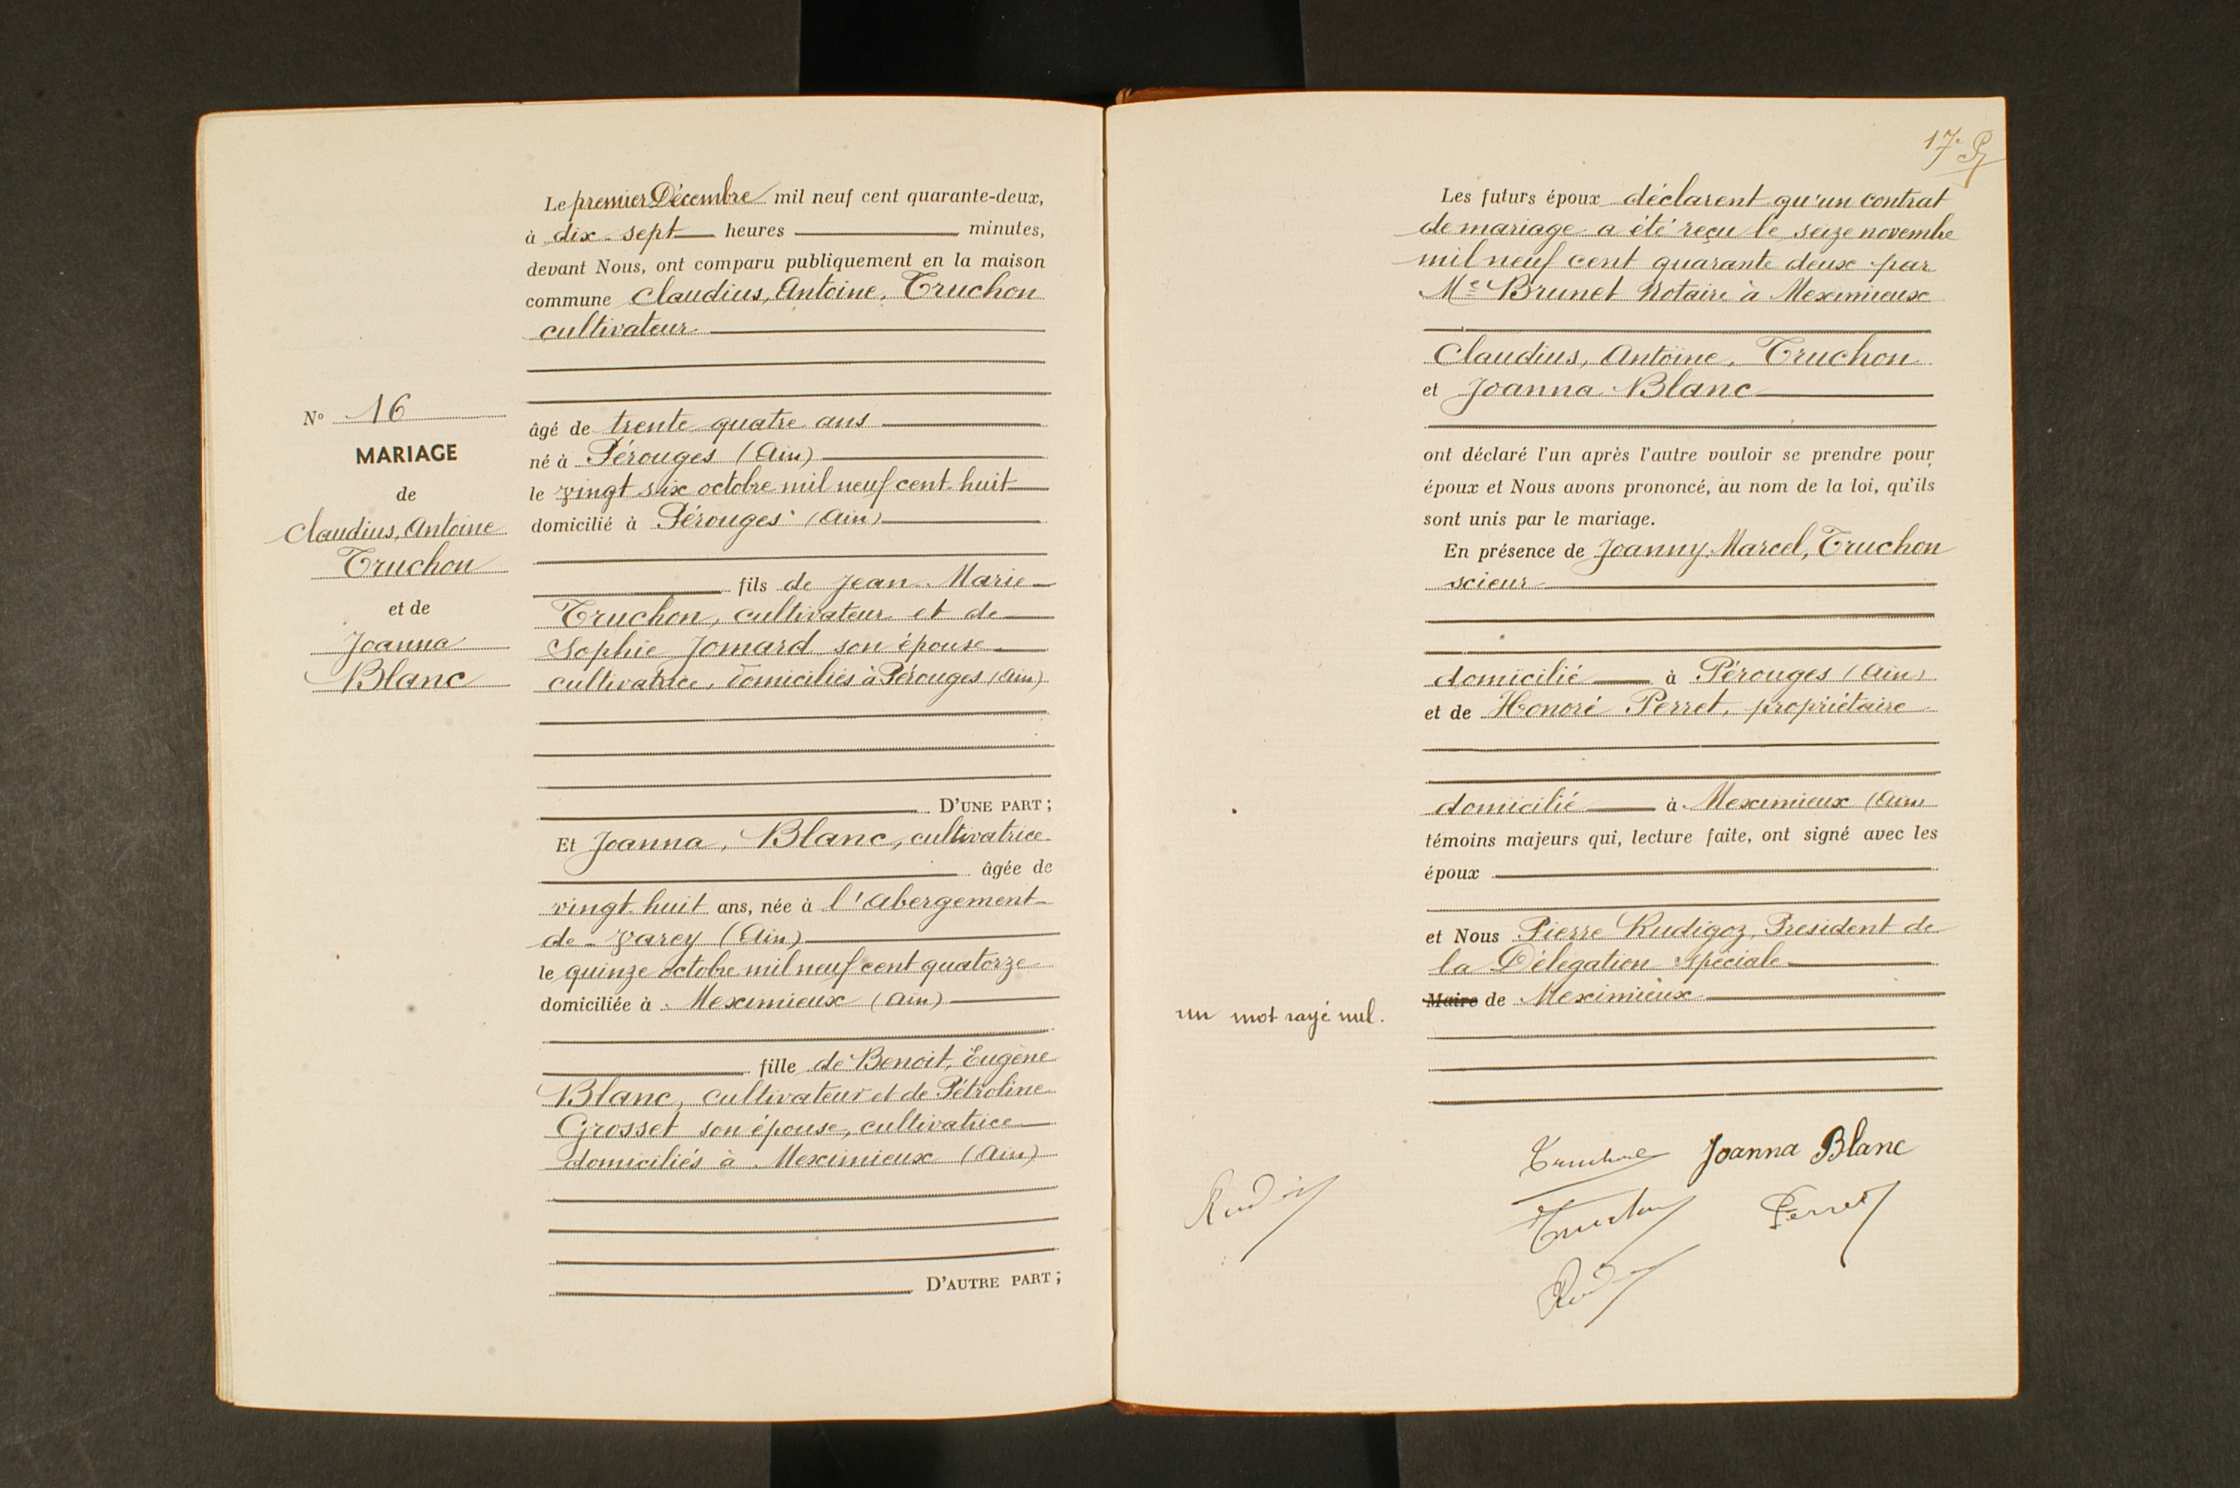 Le premier Décembre mil neuf cent quarante-deux,
à dix-sept heures minutes,
devant Nous, ont comparu publiquement en la maison
commune Claudius, Antoine, Truchon
cultivateur
N° 16
MARIAGE
de
Claudius, Antoine
Truchon
et de
Joanna
Blanc
âgé de trente quatre ans
né à Pérouges (Ain)
le vingt six octobre mil neuf cent huit
domicilié à Pérouges (Ain)
fils de Jean-Marie
Truchon, cultivateur et de
Sophie Jomard son épouse
cultivatrice, domiciliés à Pérouges (Ain)
D'UNE PART;
Et Joanna, Blanc, cultivatrice
âgée de
vingt-huit ans, née à l'Abergement
de-Varey (Ain)
le quinze octobre mil neuf cent quatorze
domiciliée à Meximieux (Ain)
fille de Benoit, Eugène
Blanc, cultivateur et de Pétroline
Grosset son épouse, cultivatrice
domiciliés à Meximieux (Ain)
D'AUTRE PART;
17.
Les futurs époux déclarent qu'un contrat
de mariage a été reçu le seize novembre
mil neuf cent quarante deux par
Me Brunet Notaire à Meximieux
Claudius, Antoine, Truchon
et Joanna Blanc
ont déclaré l'un après l'autre vouloir se prendre pour
époux et Nous avons prononcé, au nom de la loi, qu'ils
sont unis par le mariage.
En présence de Joanny Marcel, Truchon
scieur
domicilié à Pérouges (Ain)
et de Honoré Perret, propriétaire
domicilié à Meximieux (Ain
témoins majeurs qui, lecture faite, ont signé avec les
époux
et Nous Pierre Rudigoz, President de
la Délégation Spéciale
Maire de Meximieux
un mot rayé nul.
Truchon Joanna Blanc
Truchon Perret